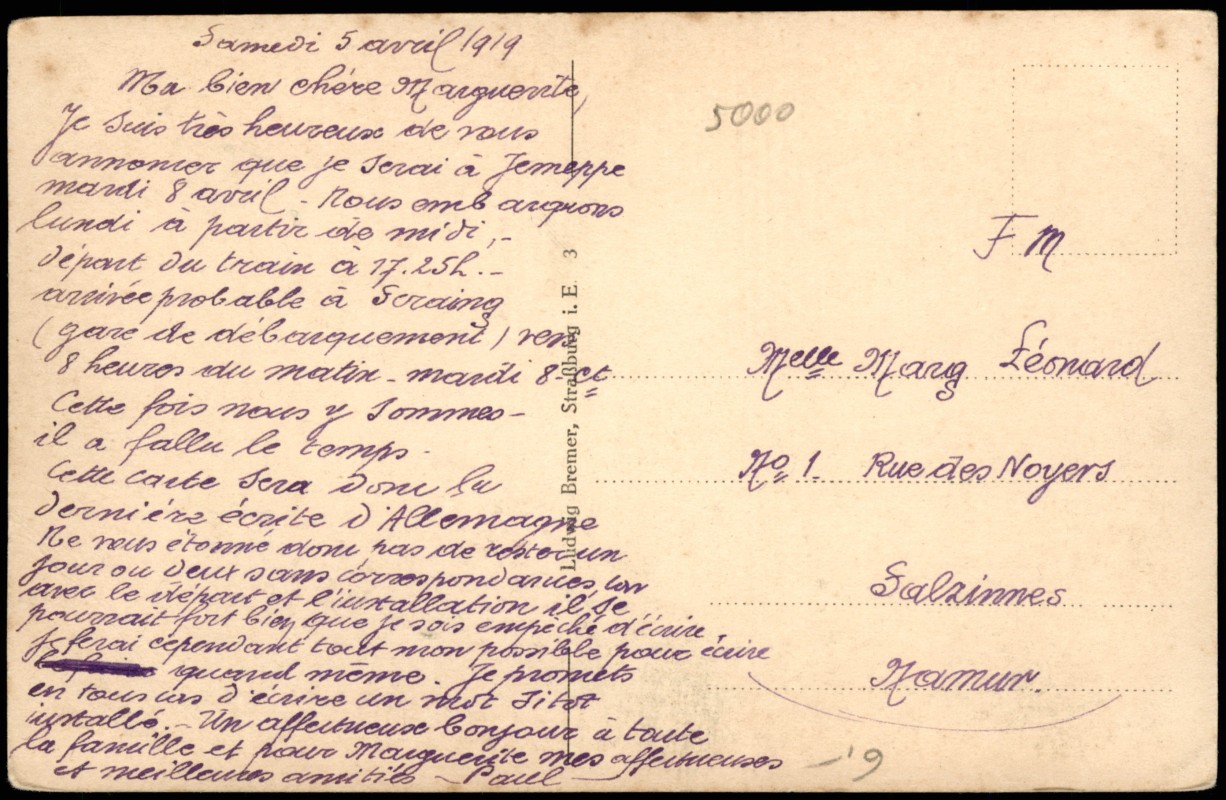 Samedi 5 avril 1919
Ma bien chére Marguerite,
Je suis très heureux de vous
annoncer que je serai à Jemeppe
mardi 8 avril - Nous embarquons
lundi à partir de midi,-
départ du train à 17.25h.-
arrivée probable à Seraing
(gare de débarquement) vers
8 heures du matin - mardi 8-ct
Cette fois nous y sommes -
il a fallu le temps -
Cette carte sera donc la
dernière écrite d'Allemagne
Ne vous étonné donc pas de rester un
jour ou deux sans correspondances car
avec le départ et l'installation il se
pourrait fort bien que je sois empêché d'écrire,
je ferai cependant tout mon possible pour écrire
quand même. Je promets
en tous cas d'écrire un mot sitot
installé.- Un affectueux bonjour à toute
la famille et pour Marguerite mes affectueuses
et meilleures amitiés - Paul
Ludwig Bremer, Straßburg i. E. 3
5000
F M
Melle Marg Léonard
No 1. Rue des Noyers
Salzinnes
Namur.
-'9